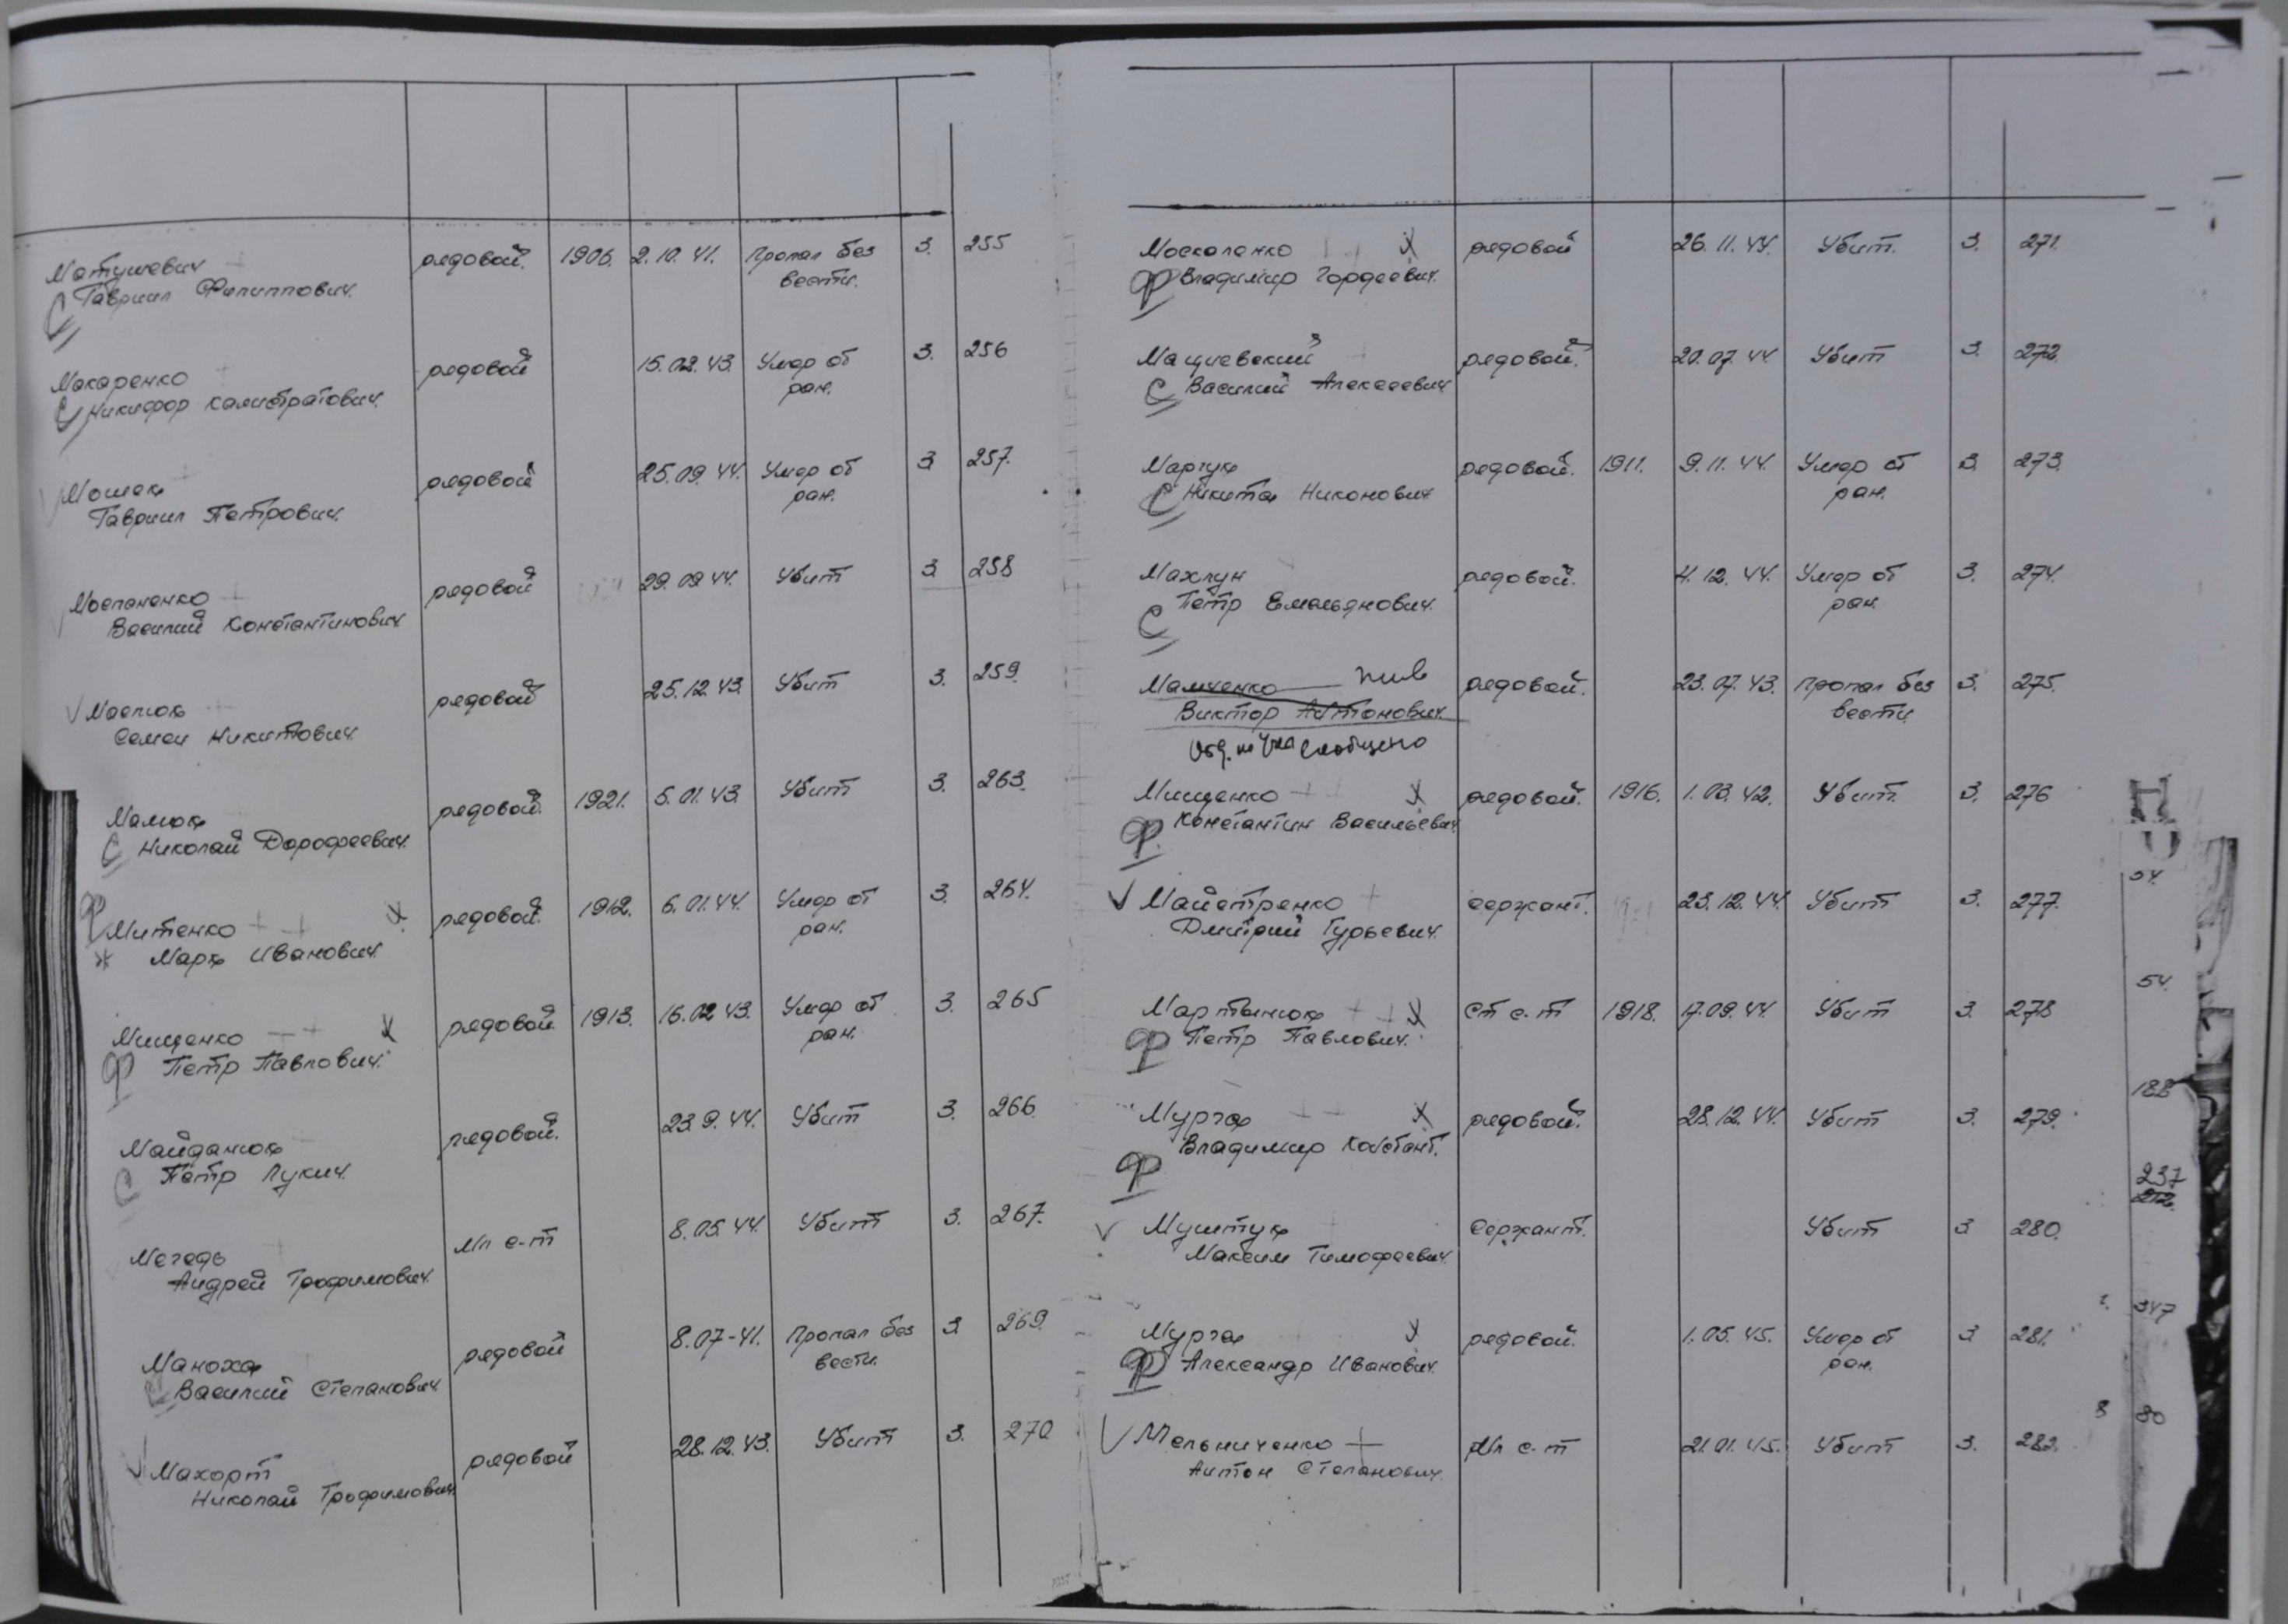 Матушевич рядовой. 1906. 2.10.41. Пропал без 3. 255
С Гавриил Филиппович. вести.
Макаренко рядовой 15.02.43. Умер от 3. 256
С Никифор Калистратович. ран.
Мошек рядовой 25.09.44. Умер от 3 257.
Гавриил Петрович. ран.
Мостаненко рядовой 29.09.44. Убит 3 258
Василий Константинович
Мостюк рядовой 25.12.43. Убит 3. 259.
Семен Никитович.
Мамюк рядовой. 1921. 5.01.43. Убит 3. 263.
С Николай Дорофеевич.
Ф Митенко рядовой. 1912. 6.01.44. Умер от 3. 264.
Марк Иванович. ран.
Мищенко рядовой. 1913. 16.02.43. Умер от 3. 265
Ф Петр Павлович. ран.
Майданюк рядовой. 23.9.44. Убит 3. 266.
С Петр Лукич.
Мегедь Мл с-т 8.05.44. Убит 3. 267.
Андрей Трофимович.
Маноха рядовой 8.07-41. Пропал без 3. 269.
С Василий Степанович. вести.
Махорт рядовой 28.12.43. Убит 3. 270
Николай Трофимович.
Москаленко рядовой 26.11.44. Убит. 3. 271.
Ф Владимир Гордеевич.
Мациевский рядовой. 20.07.44 Убит 3. 272.
С Василий Алексеевич
Марчук рядовой. 1911. 9.11.44. Умер от 3. 273.
С Никита Никонович ран.
Махлун рядовой. 4.12.44. Умер от 3. 274.
С Петр Емельянович. ран.
Мамченко жив рядовой. 23.07.43. Пропал без 3. 275.
Виктор Антонович. вести.
сообщено
Мищенко рядовой. 1916. 1.03.42. Убит. 3. 276
Ф. Константин Васильевич.
Майстренко сержант. 23.12.44. Убит 3. 277.
Дмитрий Гурьевич.
54.
Мартынюк ст с-т 1918. 17.09.44. Убит 3. 278
Ф Петр Павлович.
54.
Мурга рядовой. 28.12.44. Убит 3. 279.
Ф Владимир Констант.
188
237
212
Муштук сержант. Убит 3 280.
Максим Тимофеевич.
347
Мурга рядовой. 1.05.45. Умер от 3 281.
Ф Александр Иванович. ран.
8 80
Мельниченко Мл с-т 21.01.45. Убит 3. 282.
Антон Степанович.